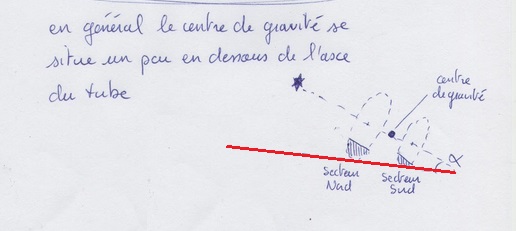 en général le centre de gravité se
situe un peu en dessous de l'asce
du tube
centre
de gravité
α
secteur
Nord
secteur
Sud